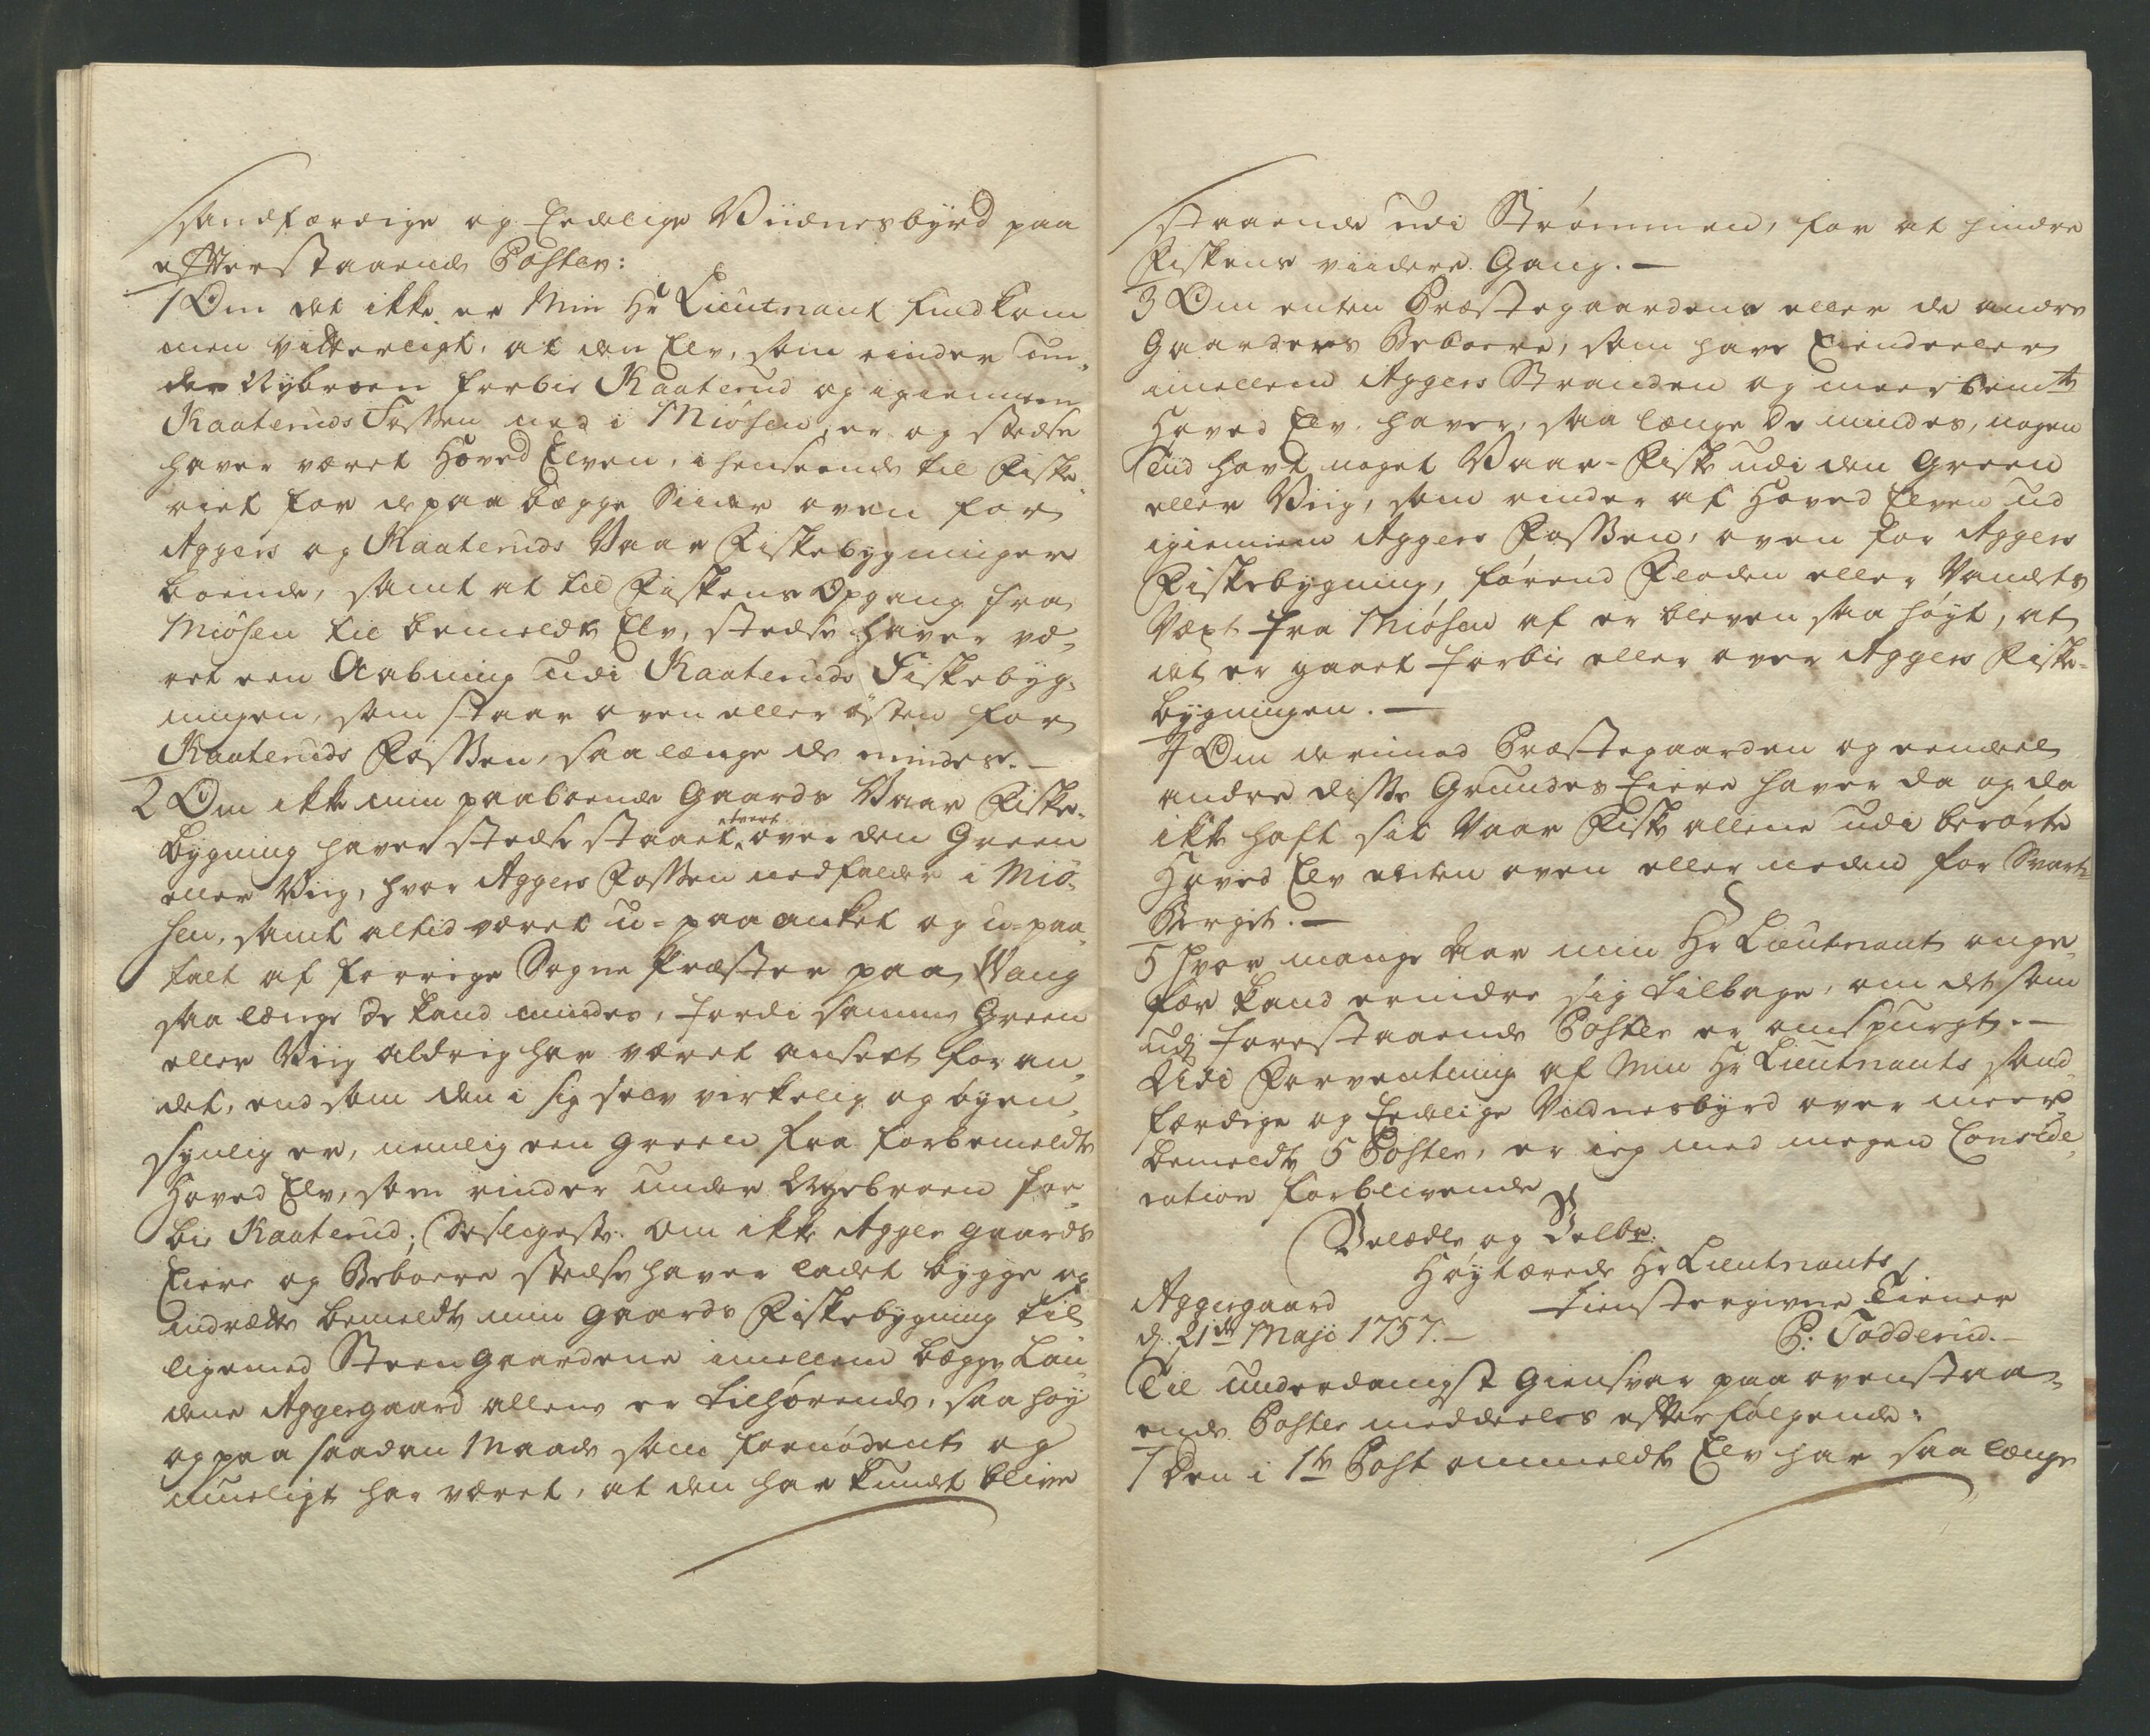 sandfærdige og Eedelige Viidnesbyrd paa
efterstaaende Poster:
1 Om det ikke er Min Hr Lieutnant fuldkom
men vitterligt, at den Elv, som rinder un-
der Nybroen forbie Kaaterud og igiennem
Kaateruds Fossen ned i Miösen, er og stedse
haver været Hoved Elven, i henseende til Fiske-
riet for de paa begge Siider oven for
Aggers og Kaateruds Vaar Fiskebygninger
boende, samt at til Fiskens Opgang fra
Miösen til bemeldte Elv, stedse haver væ-
ret een Aabning udi Kaateruds Fiskebyg-
ningen, som staar oven eller östen for
Kaateruds Fossen, saa længe de mindes. —
2 Om ikke min paaboende Gaards Vaar Fiske-
bygning haver stedse staaet tvert over den Green
eller Viig, hvor Aggers Fossen nedfalder i Miö-
sen, samt altid været u-paaanket og u-paa-
talt af forrige Sogne Præster paa Vang
saa længe De kand mindes, fordi samme Green
eller Viig aldrig har været anseet for an-
det, end som den i sig selv virkelig og öyen-
synlig er, nemlig een Green fra forbemeldte
Hoved Elv, som rinder under Nyebroen for-
bie Kaaterud; Desligeste: om ikke Agger gaards
Eiere og Beboere stedse haver ladet bygge og
indrette bemeldte min Gaards Fiskebygning til
ligemed Steengaardene imellem begge Lan-
dene Aggergaard allene er tilhörende, saa höy
og paa saadan Maade som fornödent og
mueligt har været, at den har kundet blive
staaende udi Strømmen, for at hindre
Fiskens viidere Gang. —
3 Om enten Præstegaardens eller de andre
Gaarders Beboere, som have Eiendeeler
imellem Aggers Stranden og meerbemte
Hoved Elv, haver, saa længe De mindes, nogen
tiid havt noget Vaar-Fiske udi den Green
eller Viig, som rinder af Hoved Elven ud
igiennem Aggers Fossen, oven for Aggers
Fiskebygning, förend Floden eller Vandets
Vext fra Miösen af er bleven saa höyt, at
det er gaaet forbie eller over Aggers Fiske-
bygningen. —
4 Om derimod Præstegaarden og eendeel
andre disse Grundes Eiere haver da og da
ikke haft sit Vaar Fiske allene udi berörte
Hoved Elv enten oven eller neden for Svart-
Berget. —
5 Hvor mange Aar min Hr Lieutnant onge-
fær kand erindre sig tilbage, om det som
udj forestaaende Poster er omspurgt. —
Udi Forventning af Min Hr Lieutnants sand-
færdige og Eedelige Vidnesbyrd over meer-
bemeldte 5 Poster, er ieg med megen Conside-
ration forblivende
Velædle og Velbr:
Höytærede Hr Lieutnants
Aggergaard
tienstergivne Tiener
d. 21de Maji 1757. —
P: Todderud. —
Til underdanigst Giensvar paa ovenstaa-
ende Poster meddeeles efterfölgende:
1 Den i 1te Post ommeldte Elv har saa længe